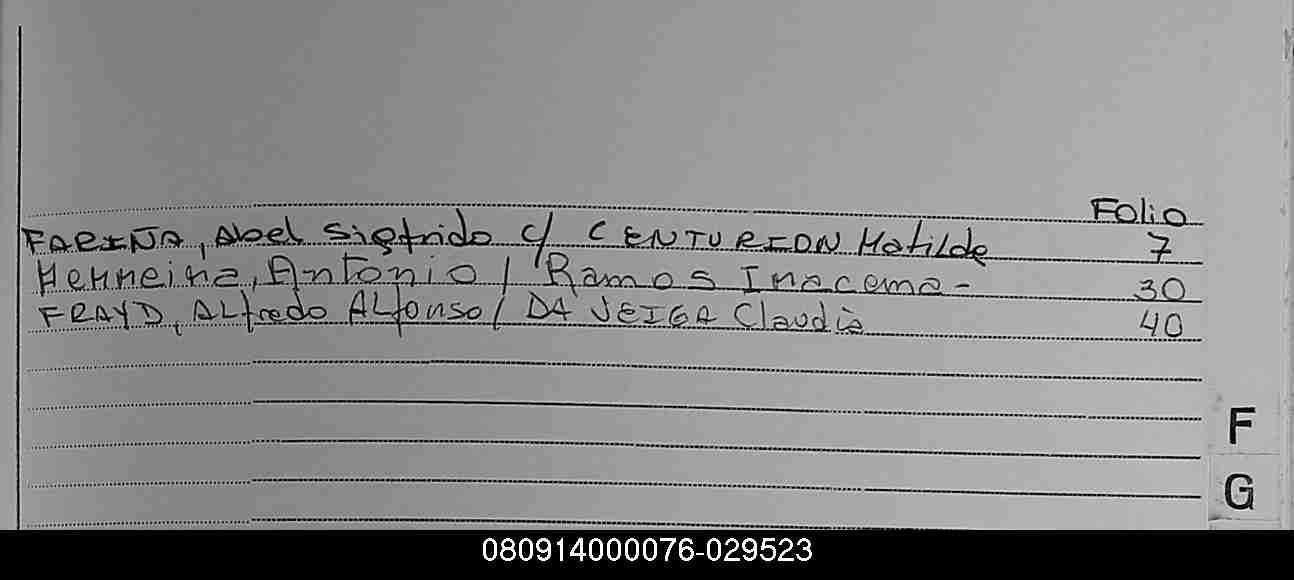 Folio
FARIÑA, Abel Sigfrido c/ CENTURION Matilde 7
Antonio / Ramos Iracema- 30
FRAYD, ALfredo ALfonso / DA VEIGA Claudia 40
F
G
080914000076-029523